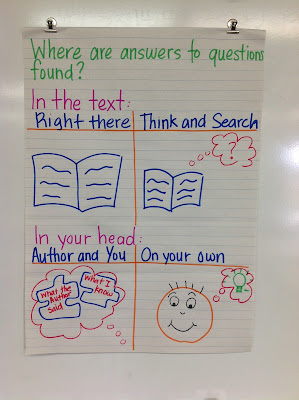 Where are answers to questions
found?
In the text:
Right there
Think and Search
?
In your head:
Author and You
On your own
What the
Author
Said
What I
know